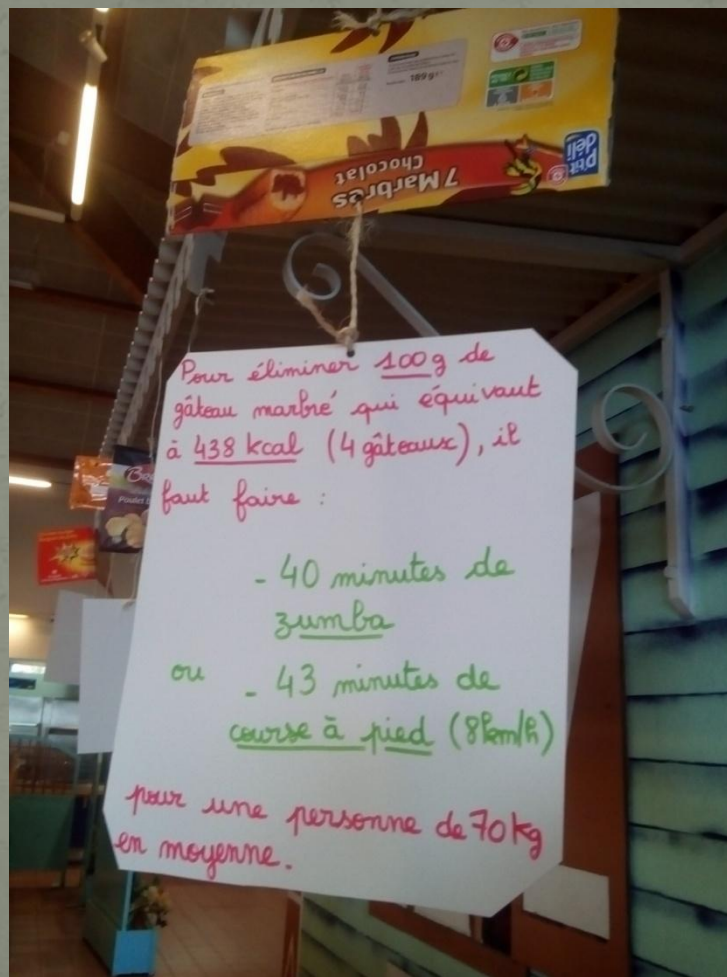 189 g
p'tit
déli
7 Marbrés
Chocolat
Pour éliminer 100g de
gâteau marbré qui équivaut
à 438 kcal (4 gâteaux), il
faut faire :
- 40 minutes de
zumba
ou - 43 minutes de
course à pied (8km/h)
pour une personne de 70kg
en moyenne.
Poulet